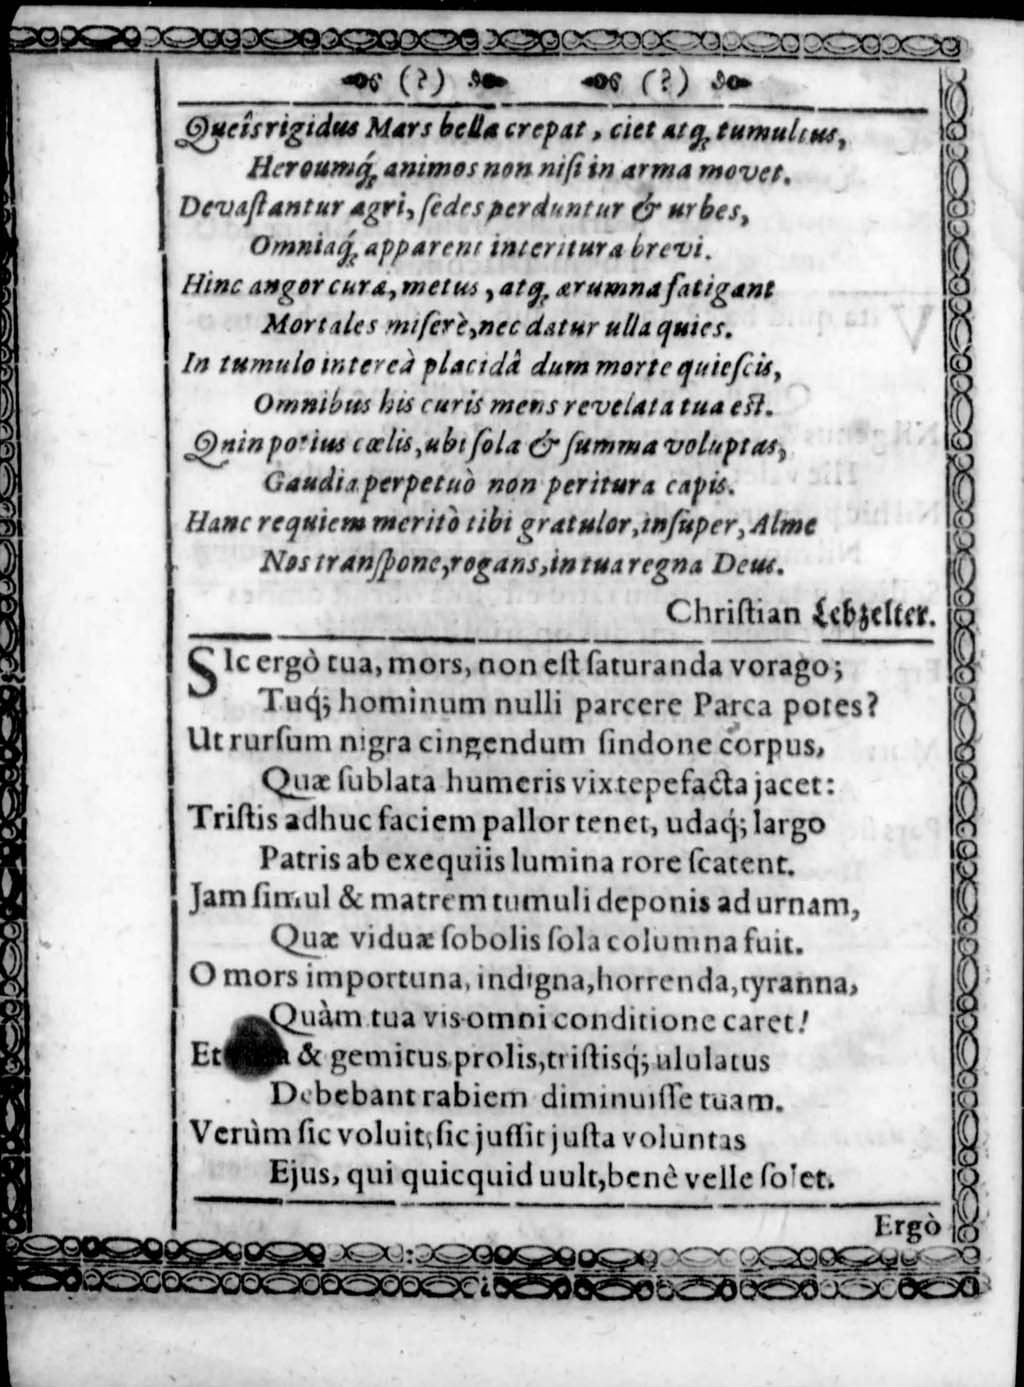 (?) (?)
Queîs rigidus Mars bella crepat, ciet atq́; tumultus,
Heroumq́; animos non niſi in arma movet.
Devaſtantur agri, ſedes perduntur & urbes,
Omniaq́; apparent interitura brevi.
Hinc angor curæ, metus, atq́; ærumna fatigant
Mortales miſerè, nec datur ulla quies.
In tumulo intereà placidâ dum morte quieſcis,
Omnibus his curis mens revelata tua eſt.
Quin potius cœlis, ubi ſola & ſumma voluptas,
Gaudia perpetuò non peritura capis.
Hanc requiem meritò tibi gratulor, inſuper, Alme
Nos tranſpone, rogans, in tua regna Deus.
Chriſtian Lebzelter.
SIc ergò tua, mors, non eſt ſaturanda vorago;
Tuq́; hominum nulli parcere Parca potes?
Ut rurſum nigra cingendum ſindone corpus,
Quæ ſublata humeris vix tepefacta jacet:
Triſtis adhuc faciem pallor tenet, udaq́; largo
Patris ab exequiis lumina rore ſcatent.
Jam ſimul & matrem tumuli deponis ad urnam,
Quæ viduæ ſobolis ſola columna fuit.
O mors importuna, indigna, horrenda, tyranna,
Quàm tua vis omni conditione caret!
Et & gemitus prolis, triſtisq́; ululatus
Debebant rabiem diminuiſſe tuam.
Verùm ſic voluit, ſic juſſit juſta voluntas
Ejus, qui quicquid uult, benè velle ſolet.
Ergò